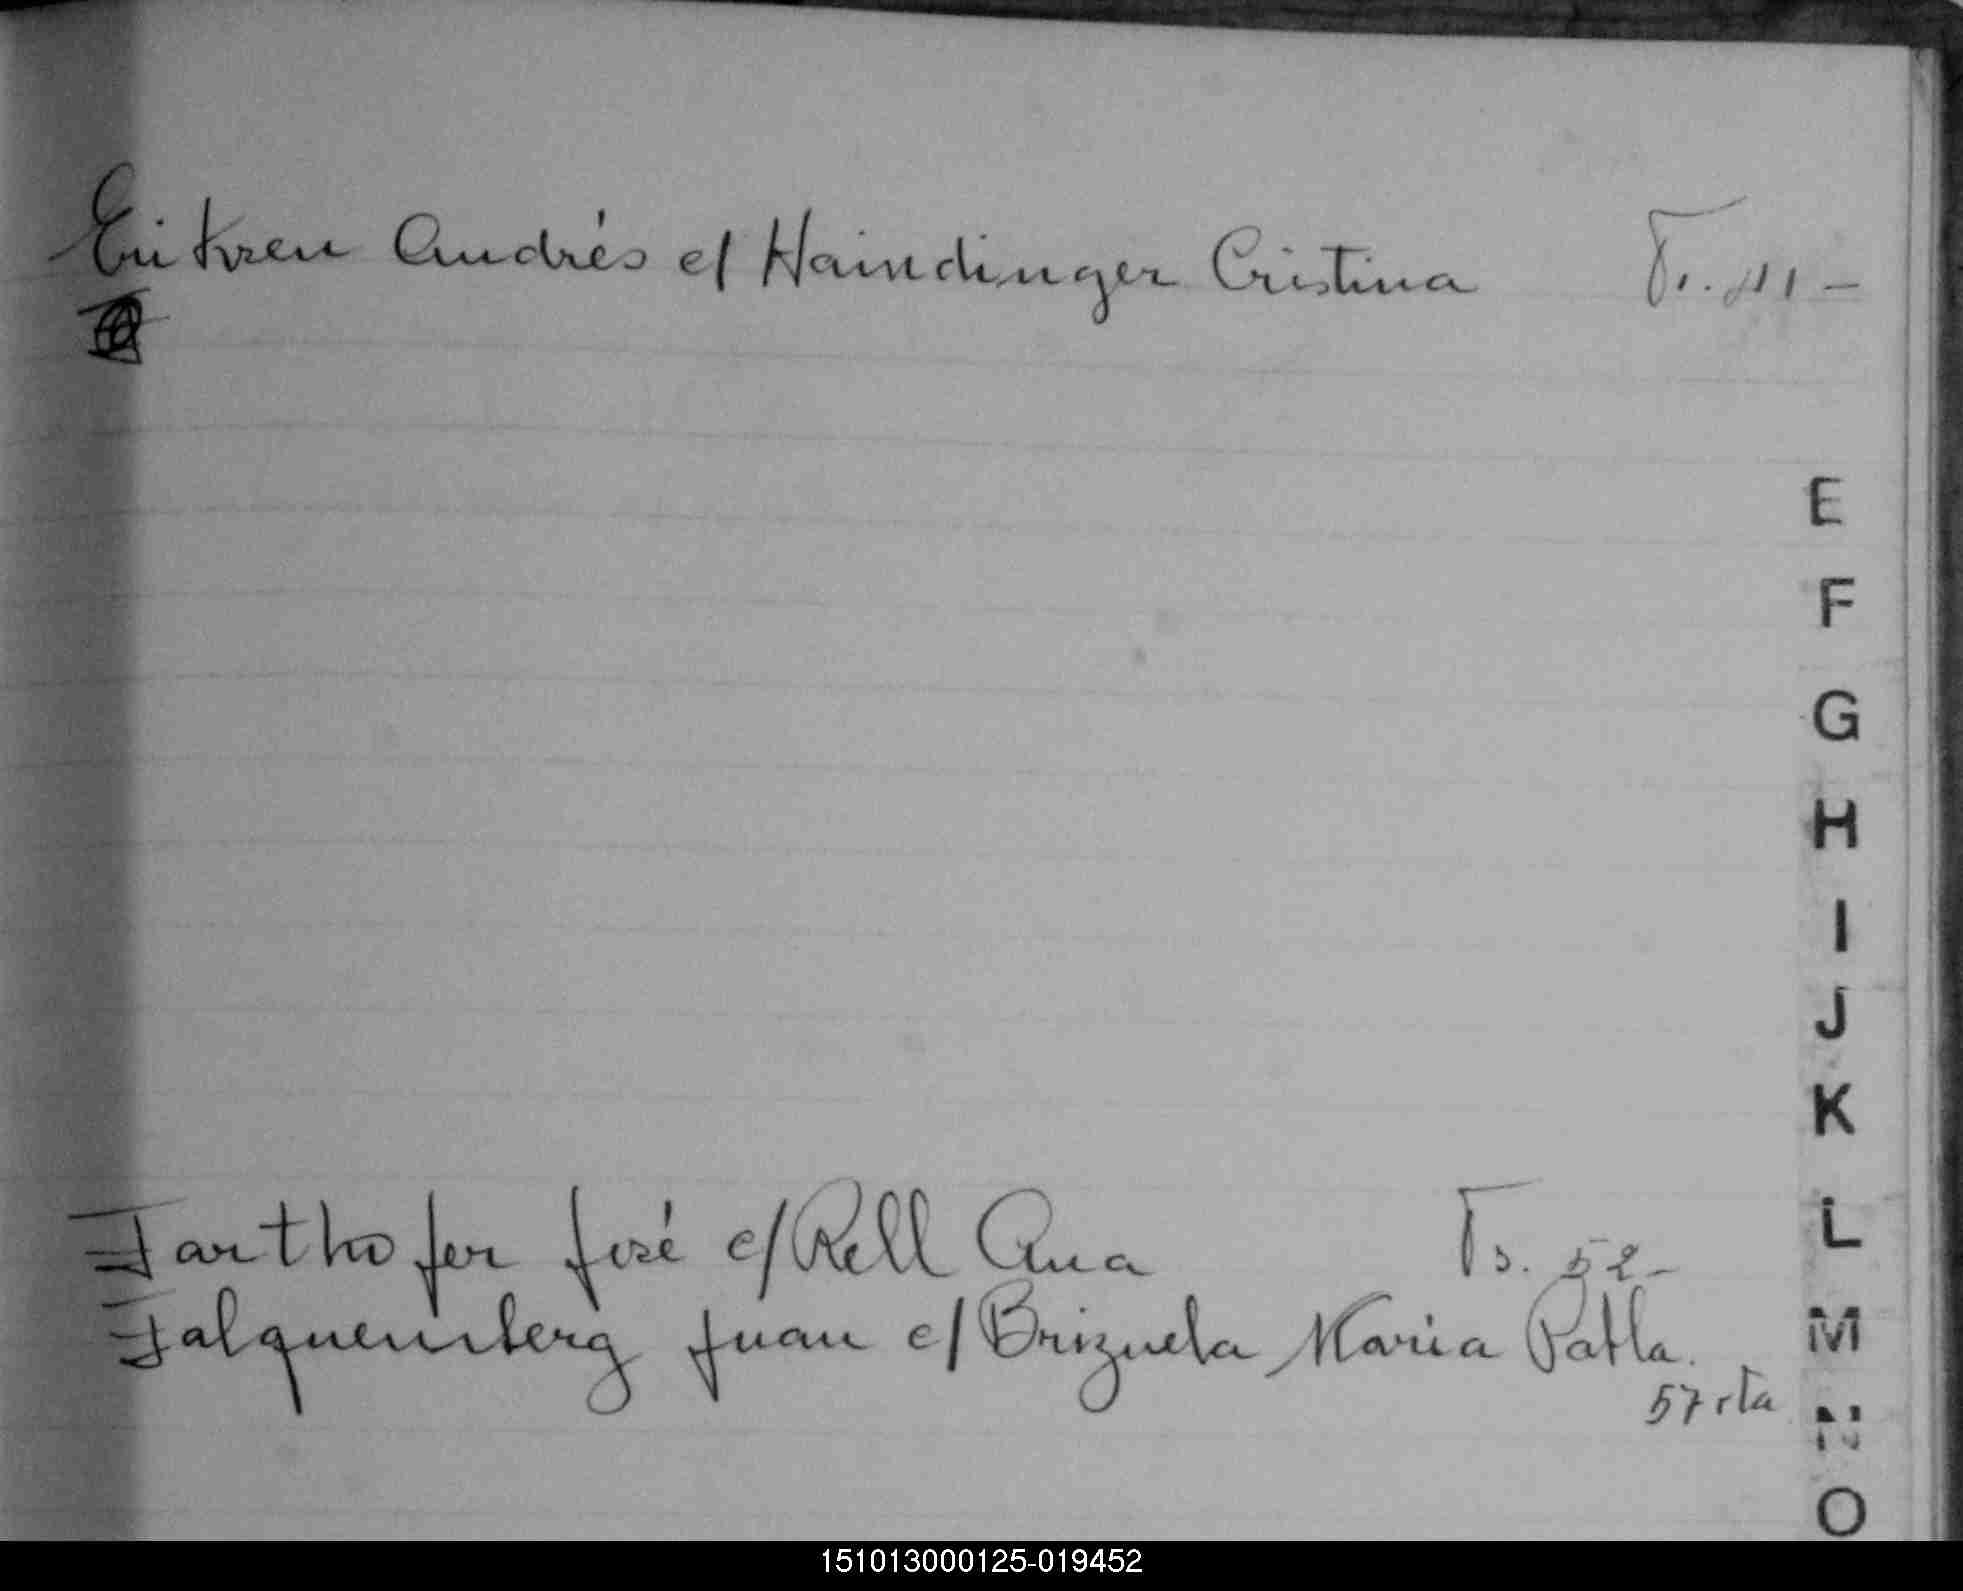 Eukren Andrés c/ Haindinger Cristina
E
F
G
H
I
J
K
L
Farthofer José c/ Rell Ana Fs. 52-
Falquemberg Juan c/ Brizuela Maria Pabla.
57 vta
M
N
O
151013000125-019452